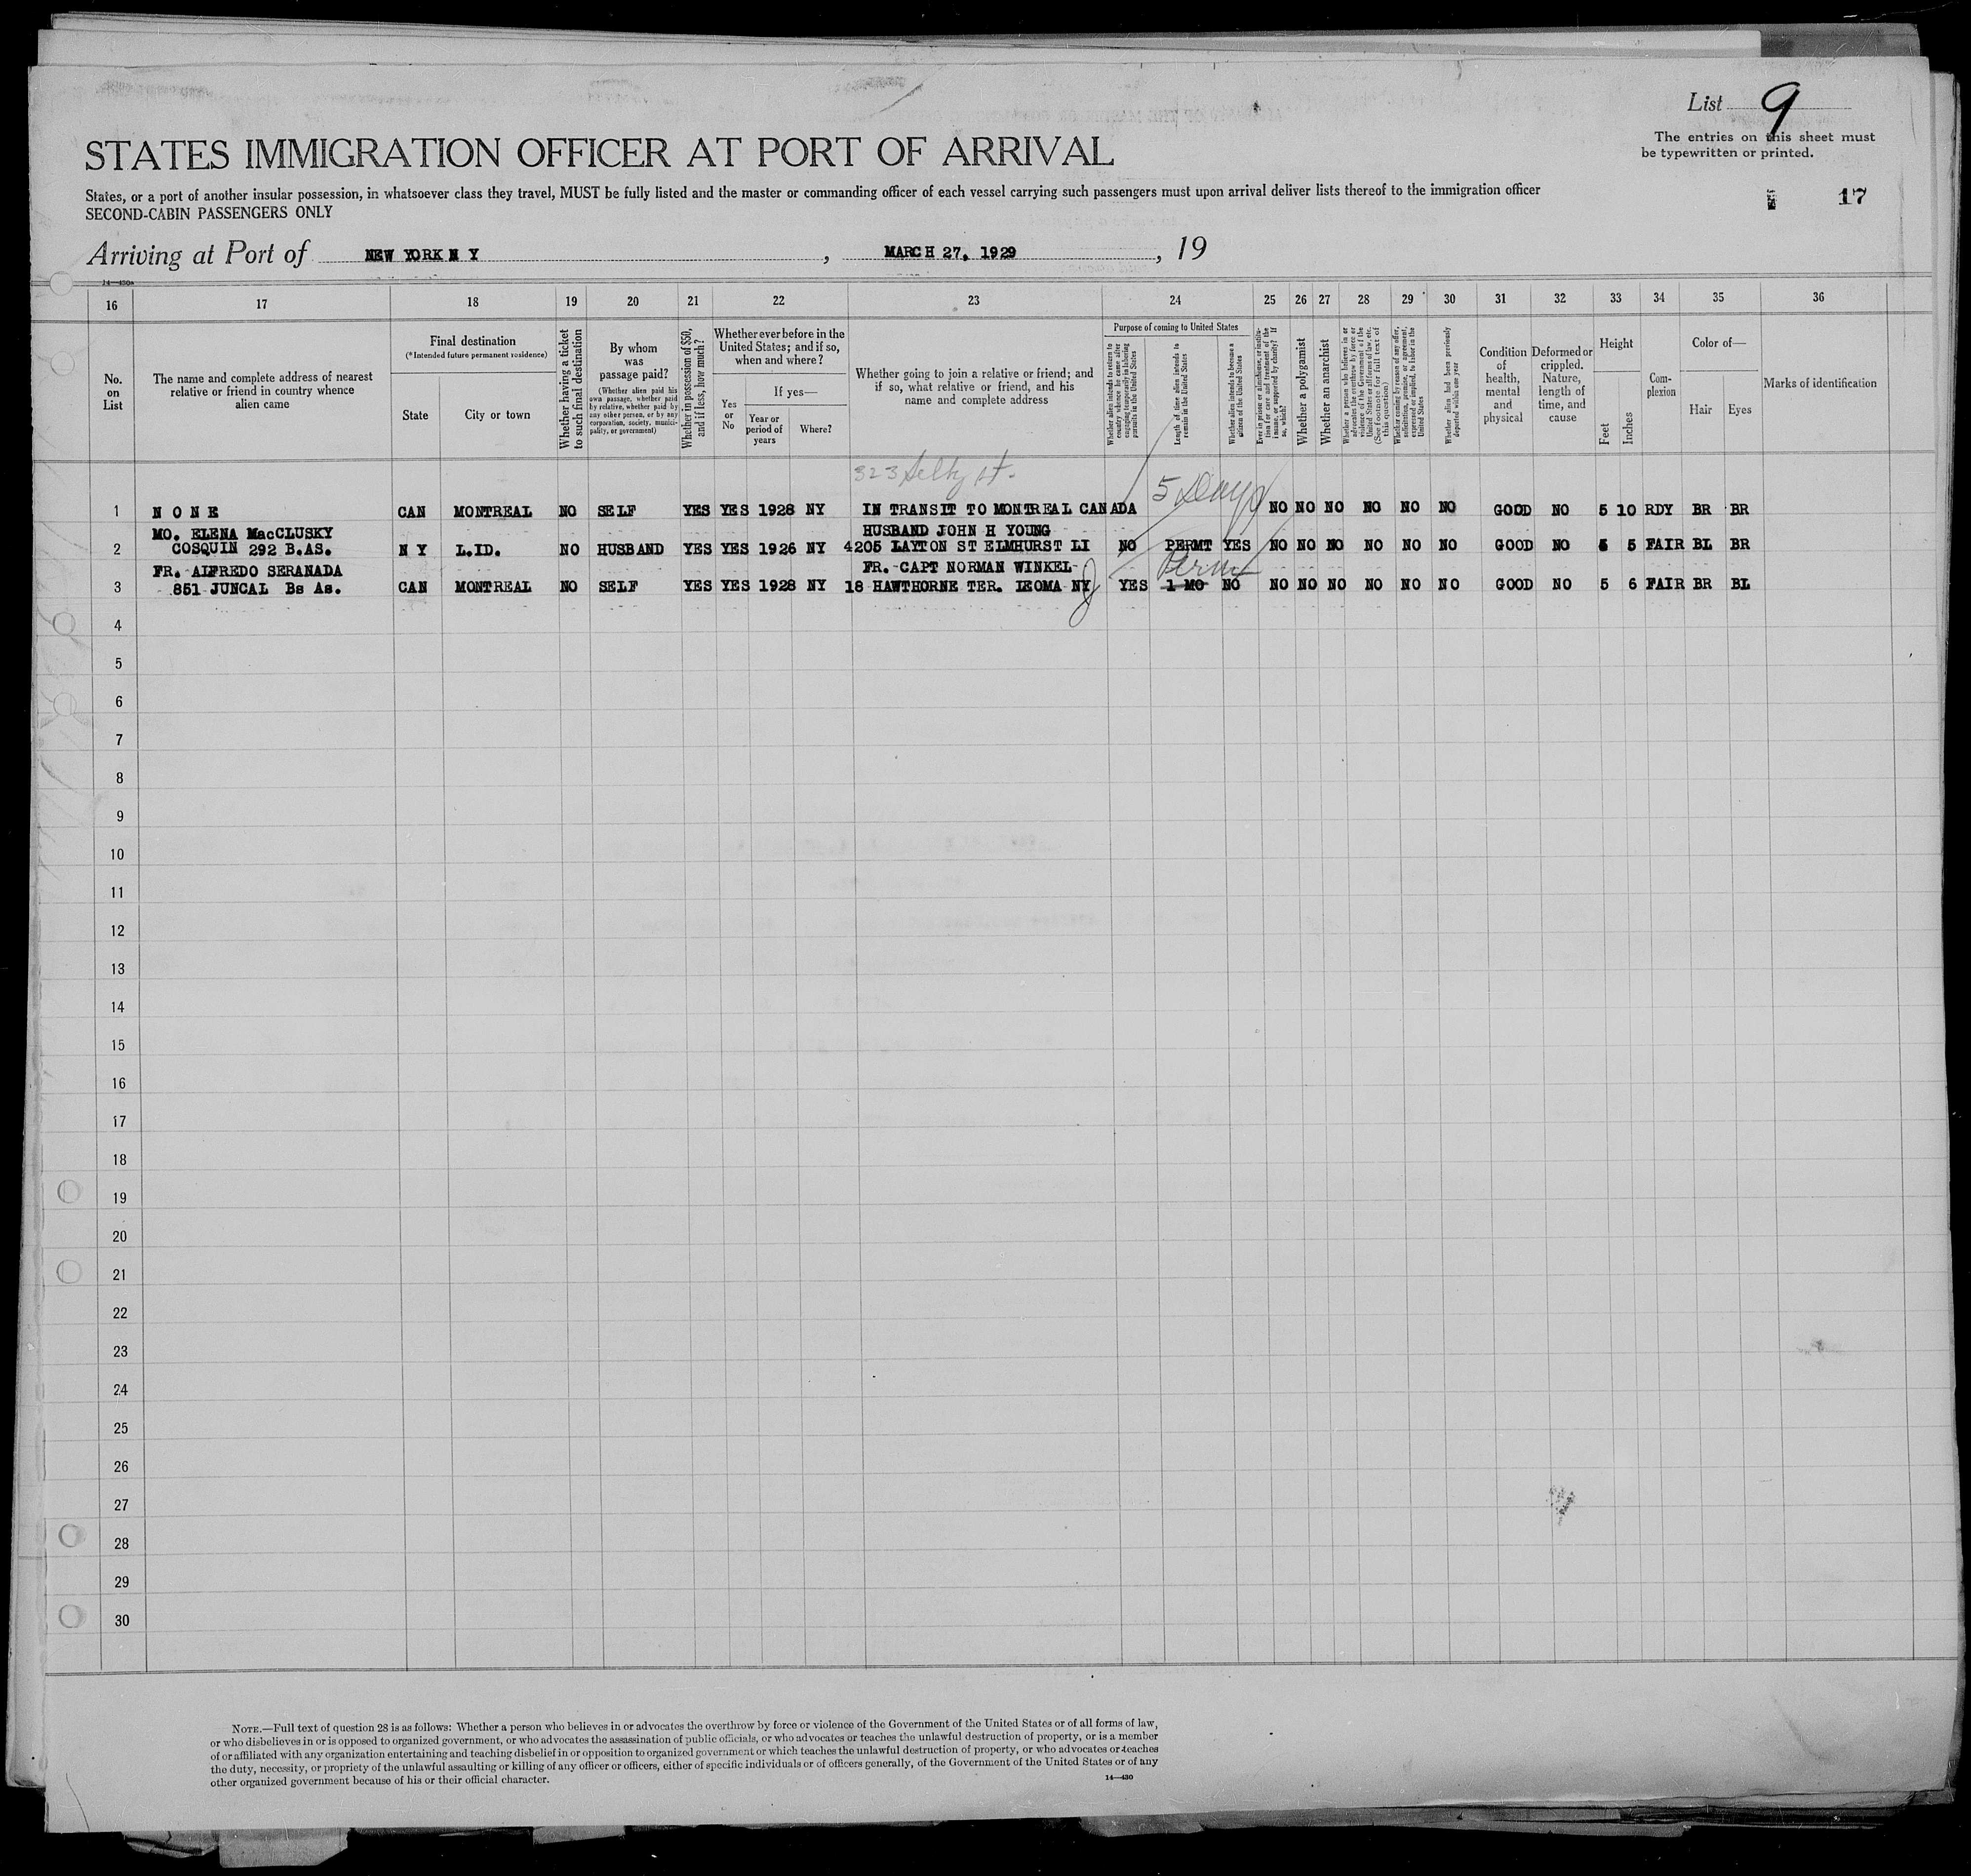 List 9
The entries on this sheet must
be typewritten or printed.
STATES IMMIGRATION OFFICER AT PORT OF ARRIVAL
States, or a port of another insular possession, in whatsoever class they travel, MUST be fully listed and the master or commanding officer of each vessel carrying such passengers must upon arrival deliver lists thereof to the immigration officer
SECOND-CABIN PASSENGERS ONLY
17
Arriving at Port of NEW YORK N Y, MARCH 27, 1929, 19
16 17 18 19 20 21 22 23 24 25 26 27 28 29 30 31 32 33 34 35 36
No. on List
The name and complete address of nearest relative or friend in country whence alien came
Final destination
(*Intended future permanent residence)
State
City or town
Whether having a ticket to such final destination
By whom was passage paid?
(Whether alien paid his own passage, whether paid by relative, whether paid by any other person, or by any corporation, society, municipality, or government)
Whether in possession of $50, and if less, how much?
Whether ever before in the United States; and if so, when and where?
Yes or No
If yes—
Year or period of years
Where?
Whether going to join a relative or friend; and if so, what relative or friend, and his name and complete address
Purpose of coming to United States
Whether alien intends to return to country whence he came after engaging temporarily in laboring pursuits in the United States
Length of time alien intends to remain in the United States
Whether alien intends to become a citizen of the United States
Ever in prison or almshouse, or institution for care and treatment of the insane, or supported by charity? If so, which?
Whether a polygamist
Whether an anarchist
Whether a person who believes in or advocates the overthrow by force or violence of the Government of the United States or all forms of law, etc. (See footnote for full text of this question)
Whether coming by reason of any offer, solicitation, promise, or agreement, expressed or implied, to labor in the United States
Whether alien had been previously deported within one year
Condition of health, mental and physical
Deformed or crippled. Nature, length of time, and cause
Height
Feet
Inches
Complexion
Color of—
Hair
Eyes
Marks of identification
323 Selby st.
5 Days
1 NONE CAN MONTREAL NO SELF YES YES 1928 NY IN TRANSIT TO MONTREAL CANADA NO NO NO NO NO NO GOOD NO 5 10 RDY BR BR
MO. ELENA MacCLUSKY HUSBAND JOHN H YOUNG
2 COSQUIN 292 B.AS. N Y L.ID. NO HUSBAND YES YES 1926 NY 4205 LAYTON ST ELMHURST LI NO PERMT YES NO NO NO NO NO NO GOOD NO 5 5 FAIR BL BR
FR. ALFREDO SERANADA FR. CAPT NORMAN WINKEL Perm
3 851 JUNCAL Bs As. CAN MONTREAL NO SELF YES YES 1928 NY 18 HAWTHORNE TER. LEOMA NY YES 1 MO NO NO NO NO NO NO NO GOOD NO 5 6 FAIR BR BL
4
5
6
7
8
9
10
11
12
13
14
15
16
17
18
19
20
21
22
23
24
25
26
27
28
29
30
NOTE.—Full text of question 28 is as follows: Whether a person who believes in or advocates the overthrow by force or violence of the Government of the United States or of all forms of law,
or who disbelieves in or is opposed to organized government, or who advocates the assassination of public officials, or who advocates or teaches the unlawful destruction of property, or is a member
of or affiliated with any organization entertaining and teaching disbelief in or opposition to organized government or which teaches the unlawful destruction of property, or who advocates or teaches
the duty, necessity, or propriety of the unlawful assaulting or killing of any officer or officers, either of specific individuals or of officers generally, of the Government of the United States or of any
other organized government because of his or their official character.
14—430